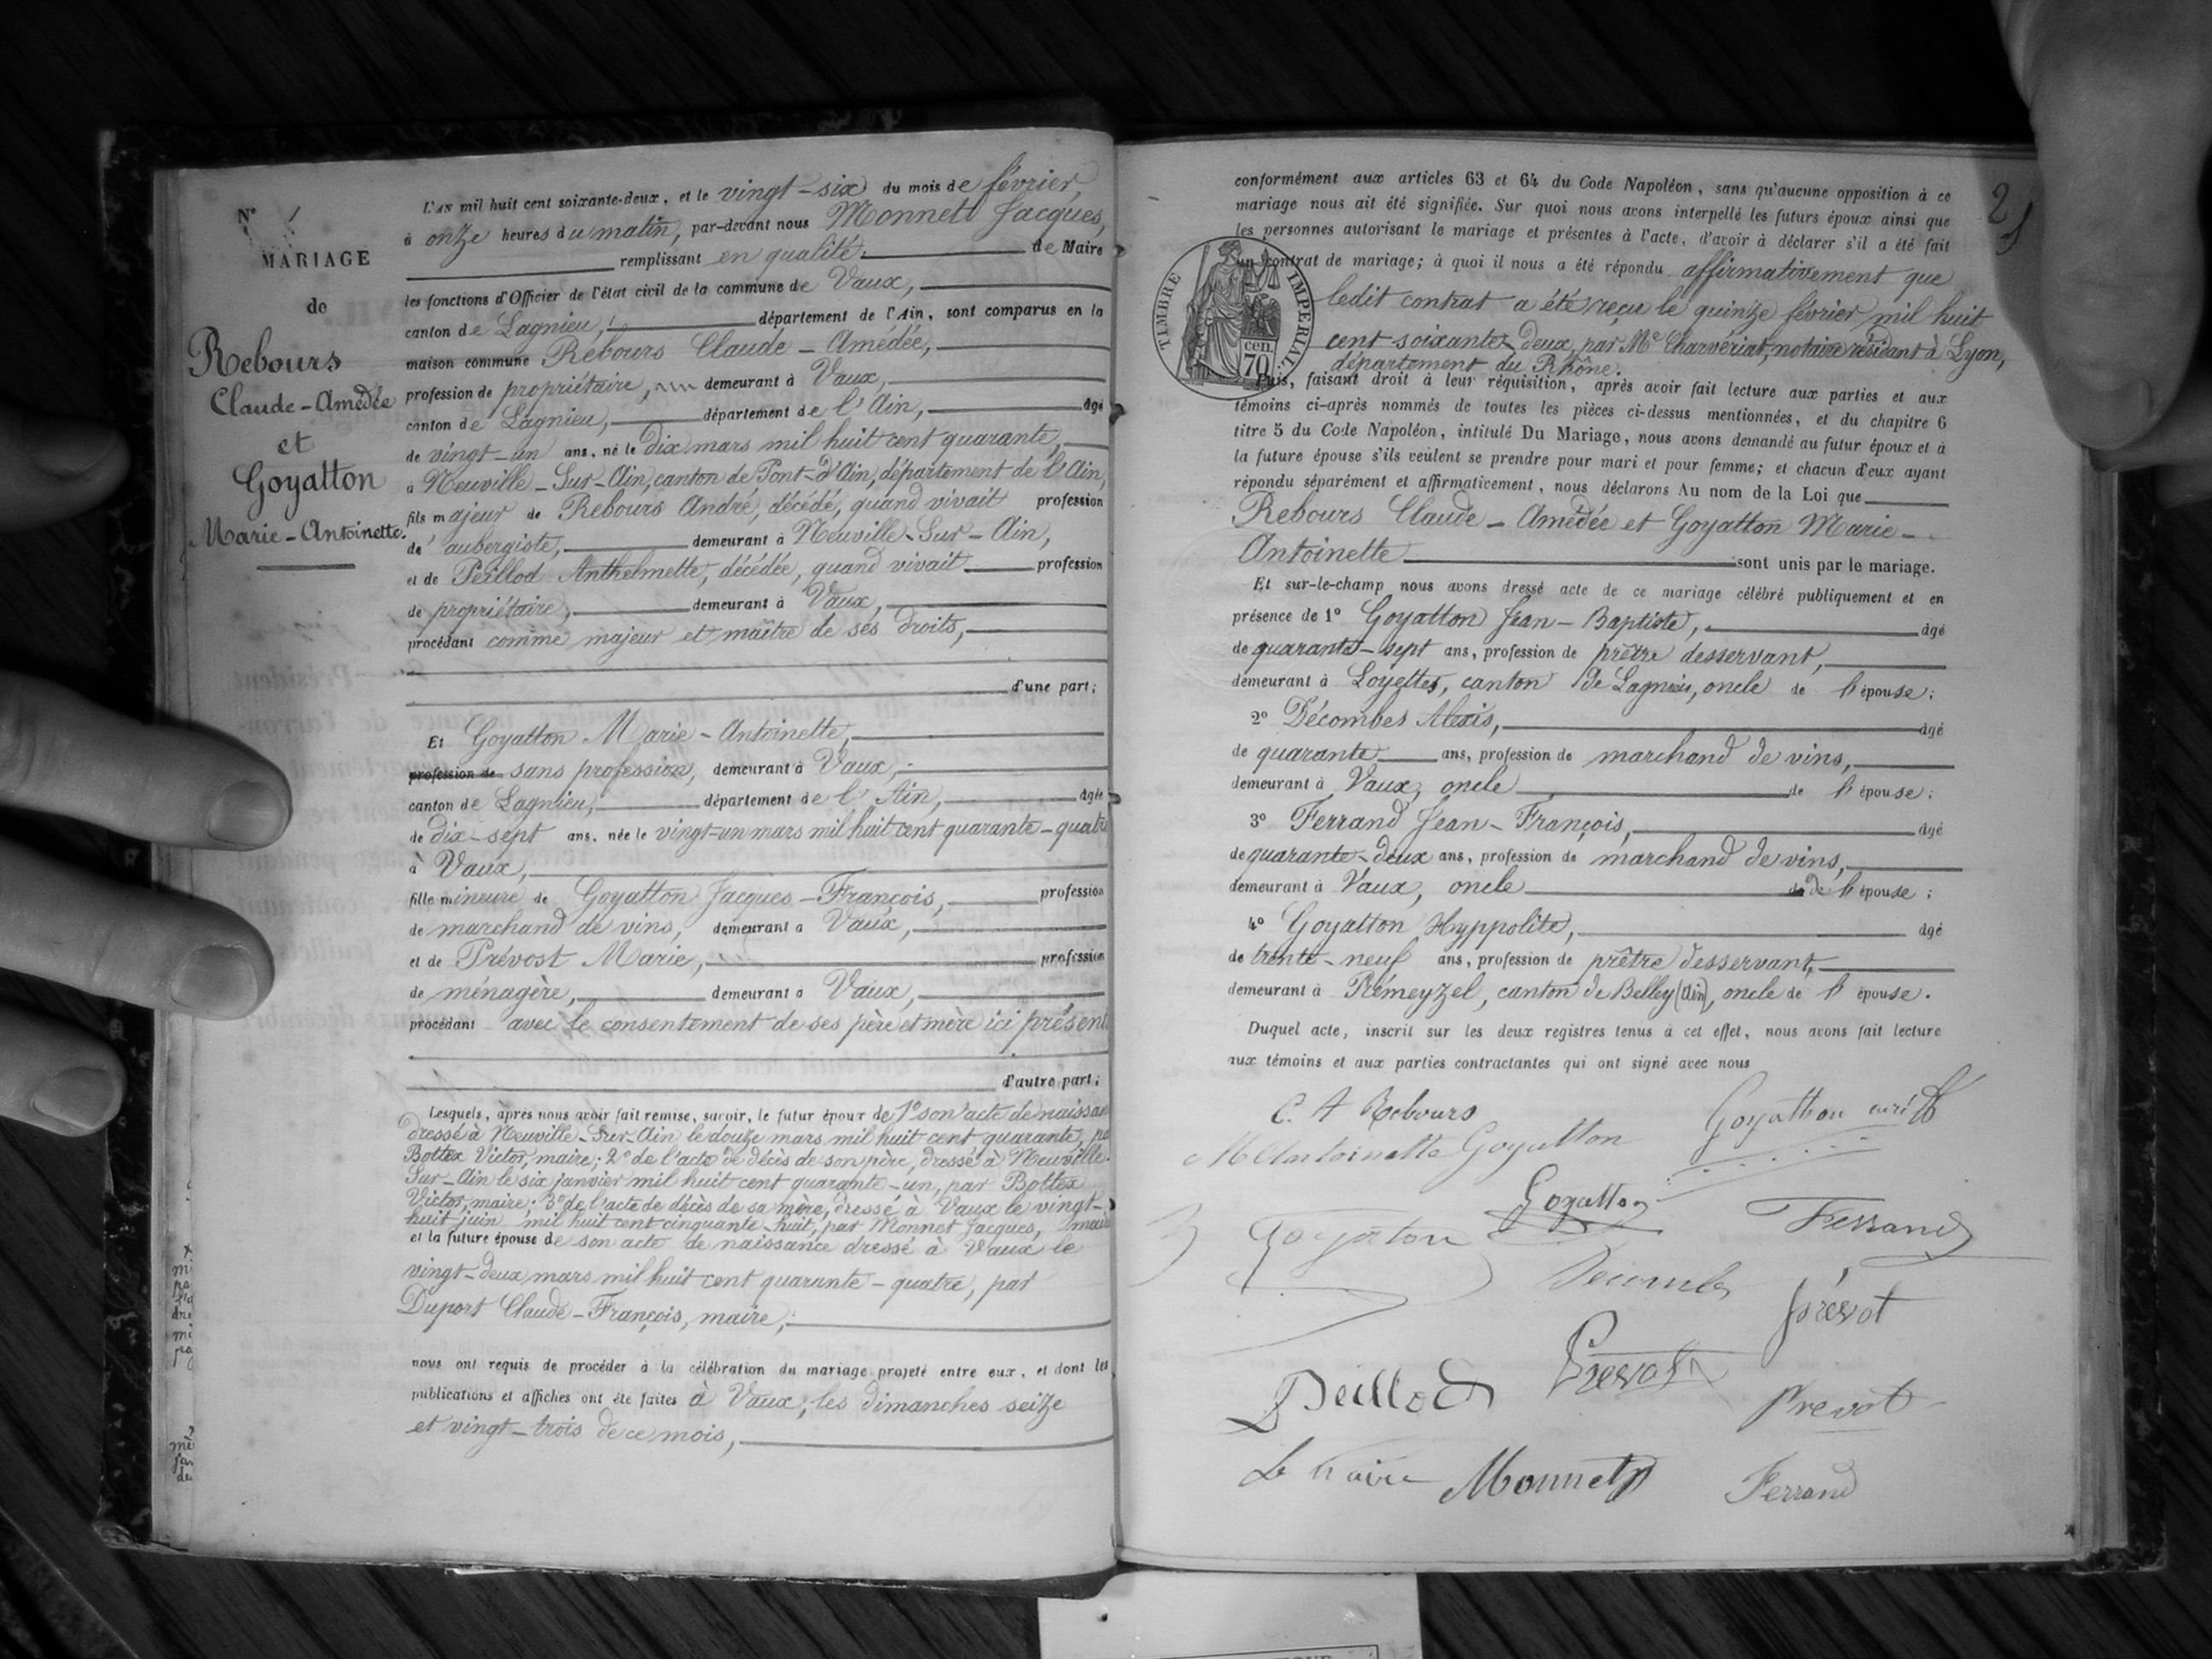 N° 1
MARIAGE
de
Rebours
Claude-Amédée
et
Goyatton
Marie-Antoinette.
L'AN mil huit cent soixante-deux, et le vingt-six du mois de février,
à onze heures du matin, par-devant nous Monnett Jacques,
remplissant en qualité de Maire
les fonctions d'Officier de l'état civil de la commune de Vaux,
canton de Lagnieu, département de l'Ain, sont comparus en la
maison commune Rebours Claude-Amédée,
profession de propriétaire, demeurant à Vaux,
canton de Lagnieu, département de l'Ain, âgé
de vingt-un ans, né le dix mars mil huit cent quarante,
à Neuville-Sur-Ain, canton de Pont-d'Ain, département de l'Ain,
fils majeur de Rebours André, décédé, quand vivait profession
de aubergiste, demeurant à Neuville-Sur-Ain,
et de Peillod Anthelmette, décédée, quand vivait profession
de propriétaire, demeurant à Vaux,
procédant comme majeur et maître de ses droits,
d'une part;
Et Goyatton Marie-Antoinette,
profession de sans profession, demeurant à Vaux,
canton de Lagnieu, département de l'Ain, âgée
de dix-sept ans, née le vingt-un mars mil huit cent quarante-quatre
à Vaux,
fille mineure de Goyatton Jacques-François, profession
de marchand de vins, demeurant à Vaux,
et de Prévost Marie, profession
de ménagère, demeurant à Vaux,
procédant avec le consentement de ses père et mère ici présents
d'autre part;
Lesquels, après nous avoir fait remise, savoir, le futur époux de 1° son acte de naissan
dressé à Neuville-Sur-Ain le douze mars mil huit cent quarante, pa
Bottex Victor, maire; 2° de l'acte de décès de son père, dressé à Neuville-
Sur-Ain le six janvier mil huit cent quarante-un, par Bottex
Victor, maire; 3° de l'acte de décès de sa mère, dressé à Vaux le vingt-
huit juin mil huit cent cinquante-huit, par Monnet Jacques, maire
et la future épouse de son acte de naissance dressé à Vaux le
vingt-deux mars mil huit cent quarante-quatre, par
Duport Claude-François, maire;
nous ont requis de procéder à la célébration du mariage projeté entre eux, et dont les
publications et affiches ont été faites à Vaux, les dimanches seize
et vingt-trois de ce mois,
2
conformément aux articles 63 et 64 du Code Napoléon, sans qu'aucune opposition à ce
mariage nous ait été signifiée. Sur quoi nous avons interpellé les futurs époux ainsi que
les personnes autorisant le mariage et présentes à l'acte, d'avoir à déclarer s'il a été fait
un contrat de mariage; à quoi il nous a été répondu affirmativement que
ledit contrat a été reçu le quinze février mil huit
cent soixante deux, par Me Charvériat, notaire résidant à Lyon,
département du Rhône.
TIMBRE IMPERIAL
70 cen
Puis, faisant droit à leur réquisition, après avoir fait lecture aux parties et aux
témoins ci-après nommés de toutes les pièces ci-dessus mentionnées, et du chapitre 6
titre 5 du Code Napoléon, intitulé Du Mariage, nous avons demandé au futur époux et à
la future épouse s'ils veulent se prendre pour mari et pour femme; et chacun d'eux ayant
répondu séparément et affirmativement, nous déclarons Au nom de la Loi que
Rebours Claude-Amédée et Goyatton Marie-
Antoinette sont unis par le mariage.
Et sur-le-champ nous avons dressé acte de ce mariage célébré publiquement et en
présence de 1° Goyatton Jean-Baptiste, âgé
de quarante-sept ans, profession de prêtre desservant,
demeurant à Loyettes, canton de Lagnieu, oncle de l'épouse;
2° Décombes Alexis, âgé
de quarante ans, profession de marchand de vins,
demeurant à Vaux, oncle de l'épouse;
3° Ferrand Jean-François, âgé
de quarante-deux ans, profession de marchand de vins,
demeurant à Vaux, oncle de l'épouse;
4° Goyatton Hyppolite, âgé
de trente-neuf ans, profession de prêtre desservant,
demeurant à Rémeyzel, canton de Belley (Ain), oncle de l'épouse.
Duquel acte, inscrit sur les deux registres tenus à cet effet, nous avons fait lecture
aux témoins et aux parties contractantes qui ont signé avec nous
C. A Rebours
Goyatton curé
M Antoinette Goyatton
Goyatton
Goyaton
Ferrand
Decombes
prévot
Prevost
Peillod
Prevot
Le Maire Monnett
Ferrand